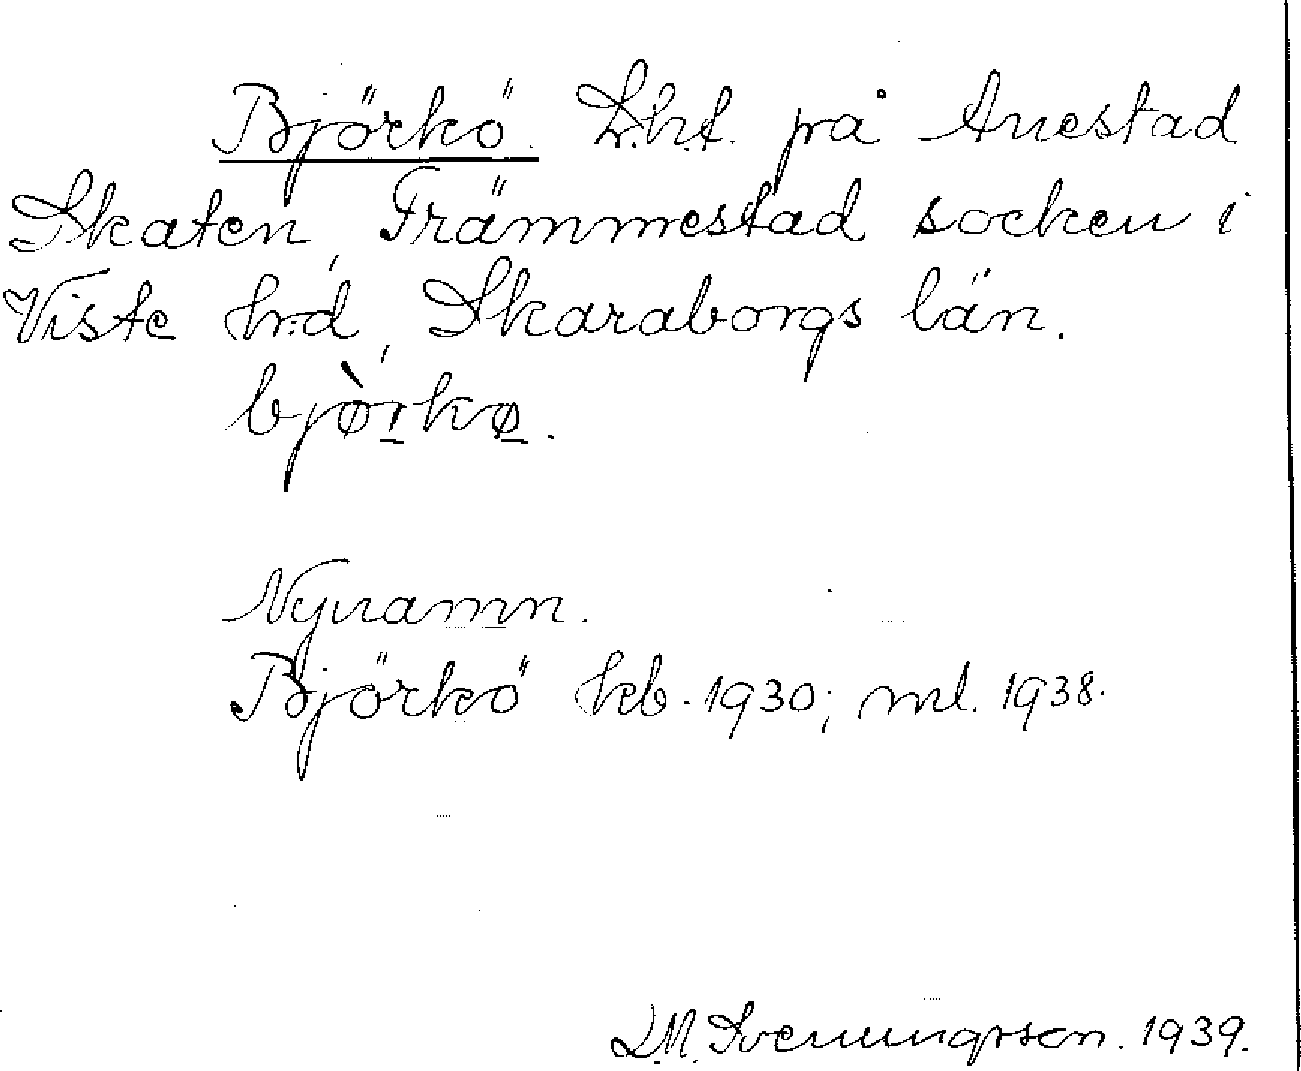 Björkö. L.h.t. på Anestad
Skaten, Främmestad socken i
Viste h:d, Skaraborgs län.
bjø̀rkø.
Nynamn.
Björkö kb. 1930; ml. 1938.
L.M. Svenungsson. 1939.